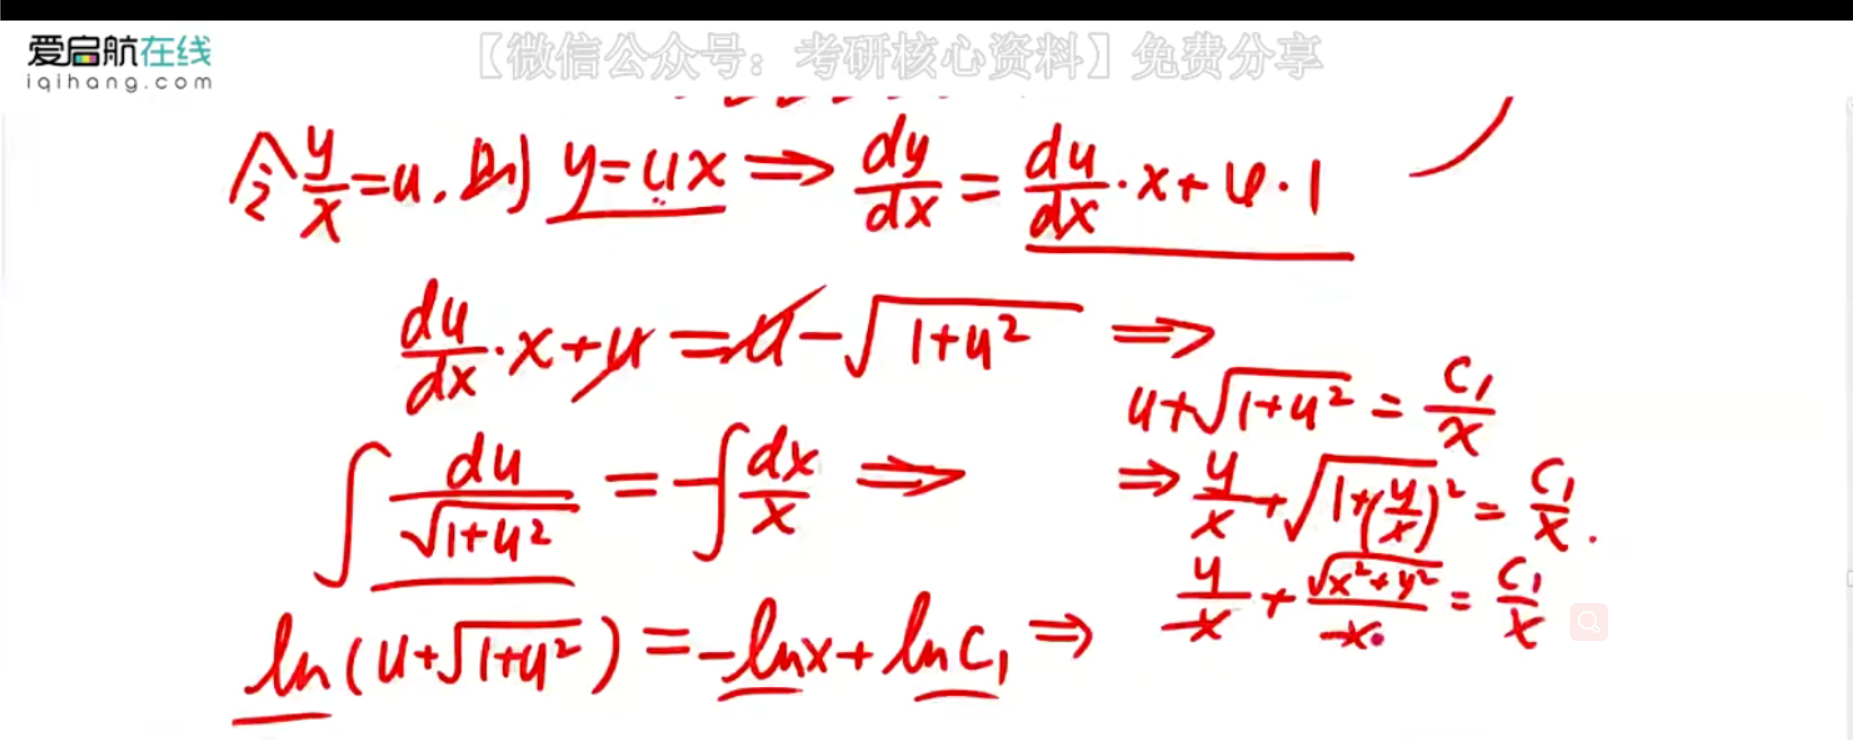 爱启航在线
iqihang.com
【微信公众号：考研核心资料】免费分享
令 y/x = u, 则 y = ux ⇒ dy/dx = du/dx · x + u · 1
du/dx · x + u = u − √(1+u²) ⇒
∫ du/√(1+u²) = −∫ dx/x ⇒
ln(u+√(1+u²)) = −lnx + lnC₁ ⇒
u+√(1+u²) = C₁/x
⇒ y/x + √(1+(y/x)²) = C₁/x.
y/x + √(x²+y²)/x = C₁/x